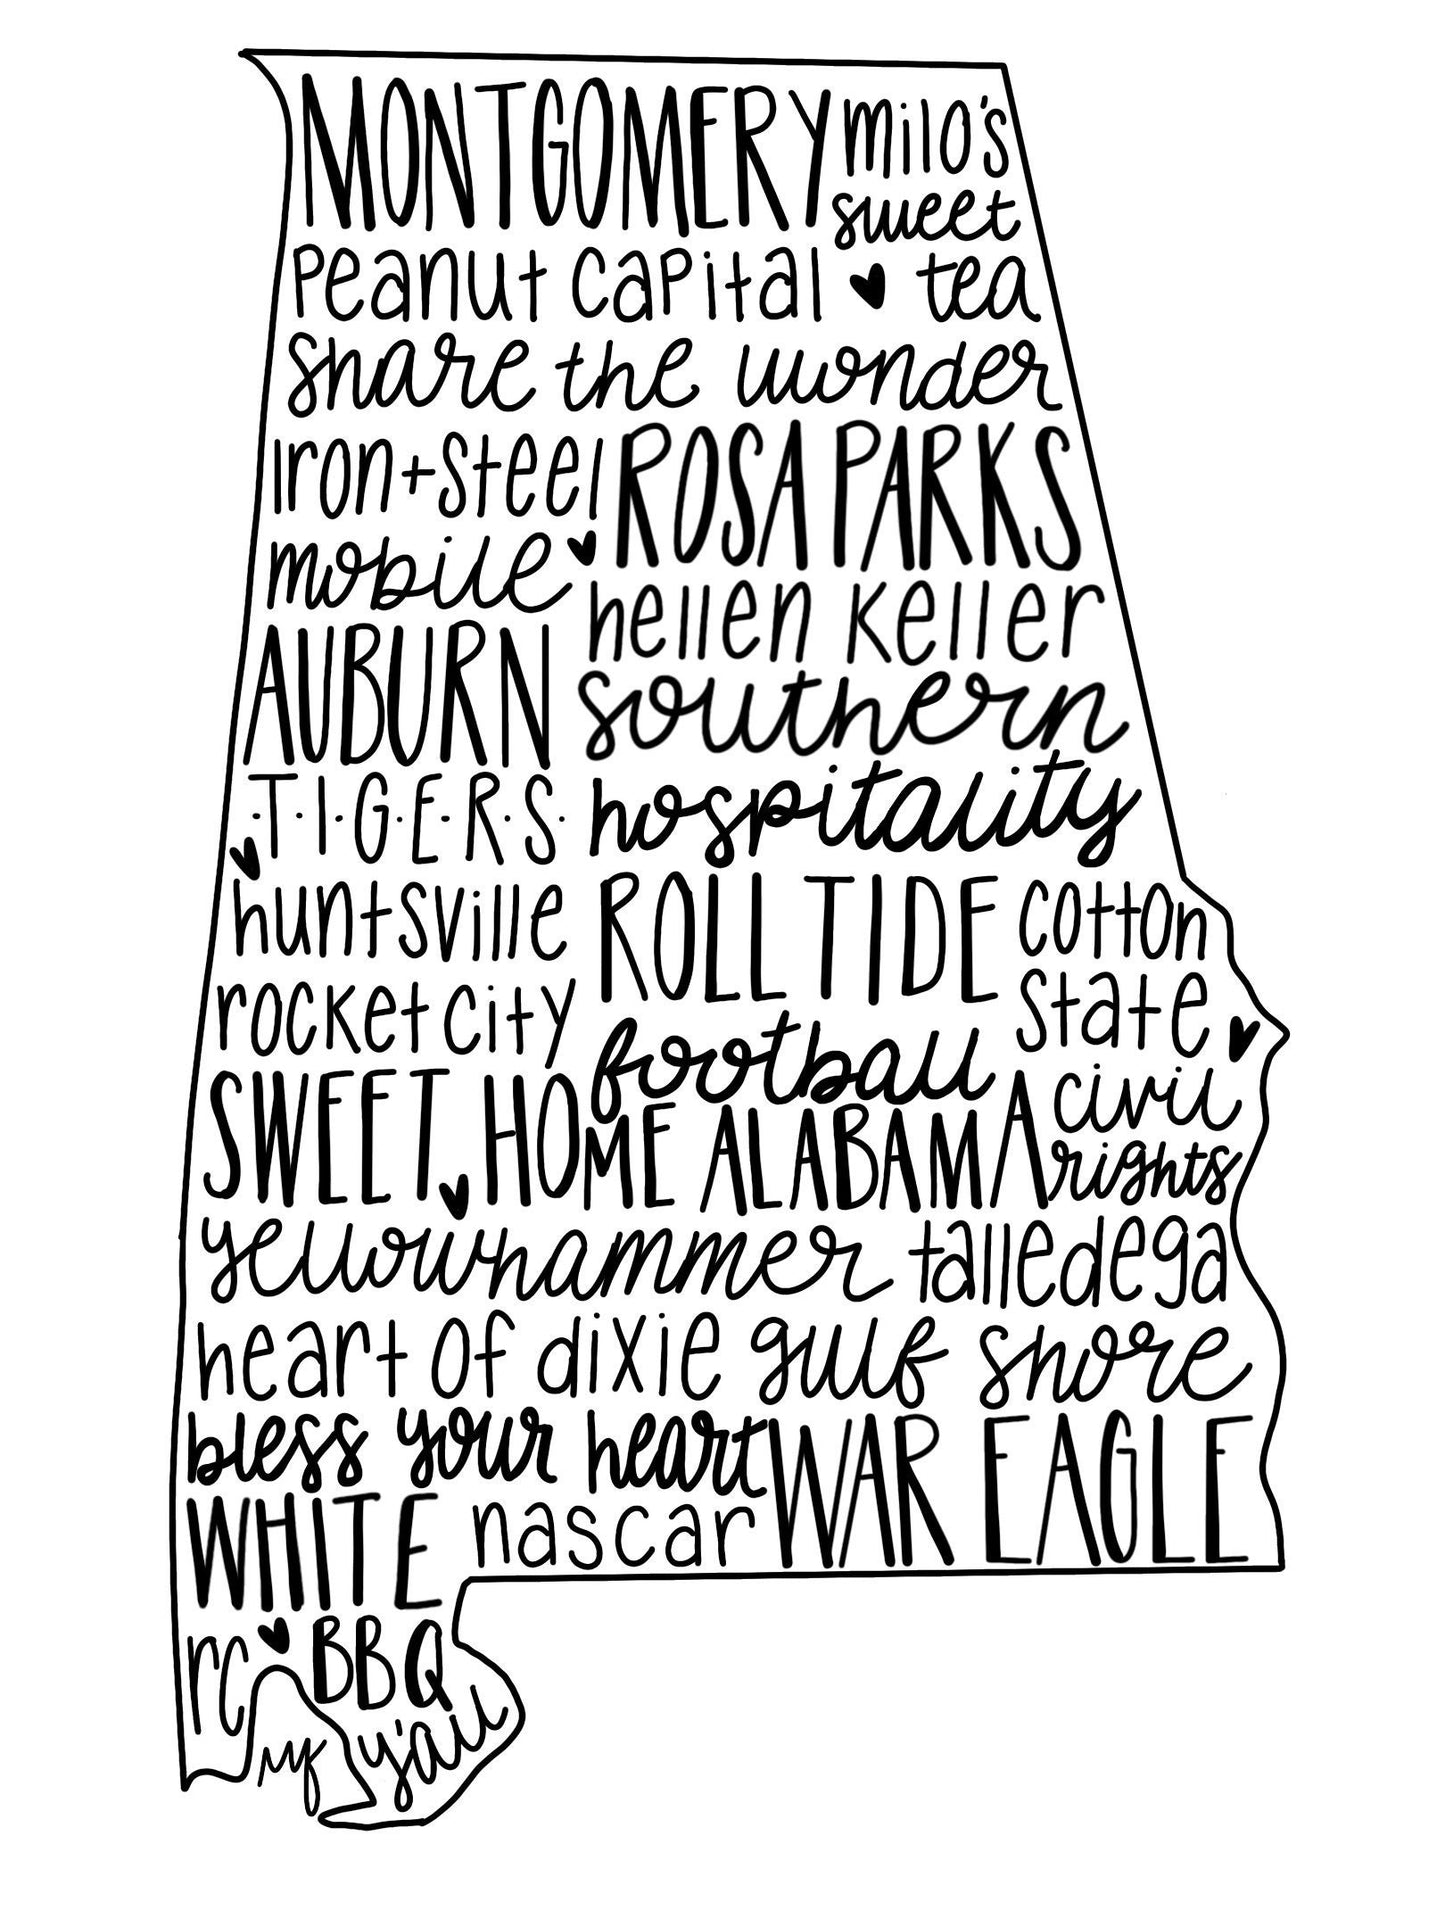 MONTGOMERY milo's
sweet
Peanut Capital tea
share the wonder
iron+steel ROSA PARKS
mobile
hellen Keller
AUBURN southern
T·I·G·E·R·S hospitality
huntsville ROLL TIDE cotton
rocket city state
football
SWEET HOME ALABAMA civil
rights
yellowhammer talledega
heart of dixie gulf shore
bless your heart WAR EAGLE
WHITE nascar
rc BBQ
y'all